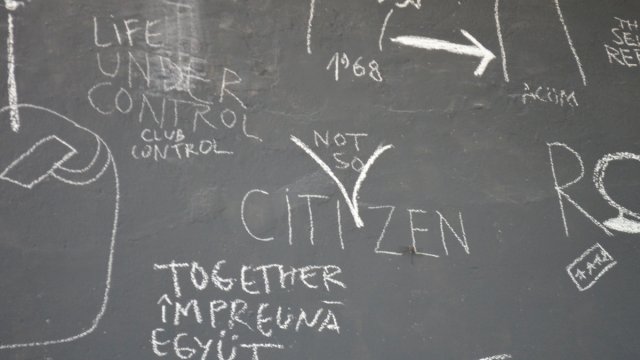 LiFE
UNDER
CONTROL
CLUB
CONTROL
1968
ACUM
NOT
SO
CITIZEN
TOGETHER
ÎMPREUNĂ
EGYÜT